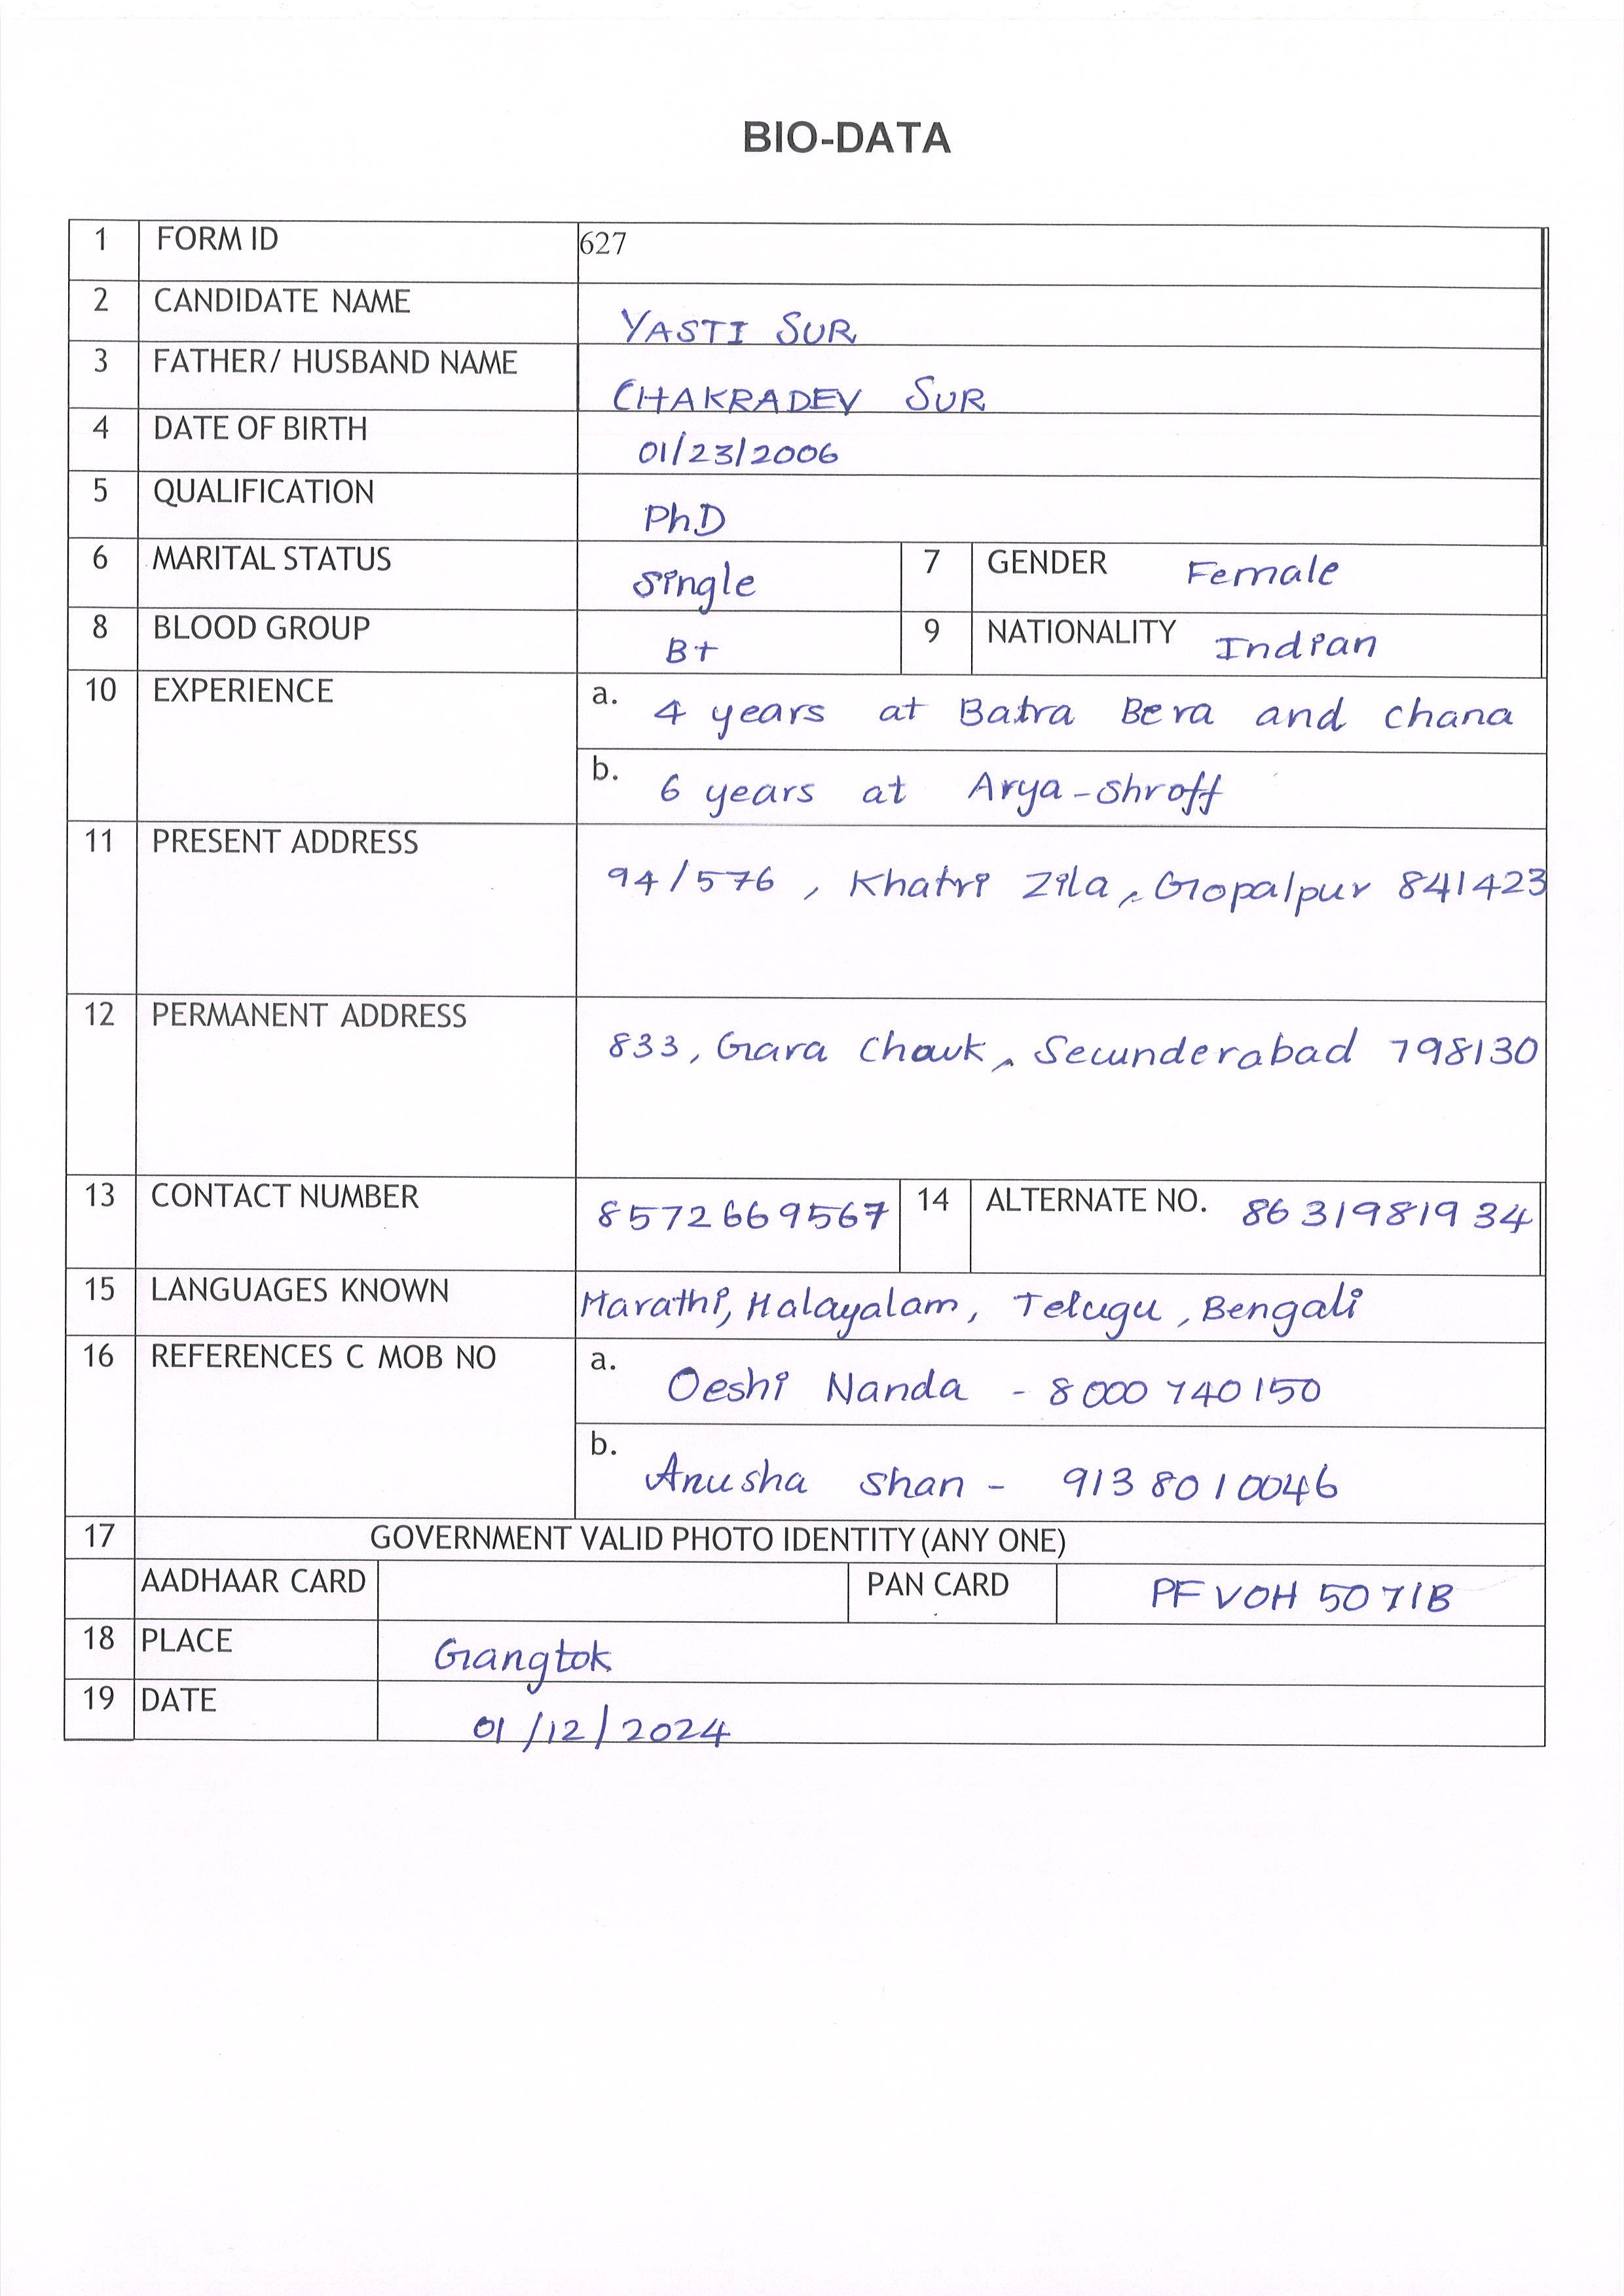 BIO-DATA
1 FORM ID 627
2 CANDIDATE NAME YASTI SUR
3 FATHER/ HUSBAND NAME CHAKRADEV SUR
4 DATE OF BIRTH 01/23/2006
5 QUALIFICATION PhD
6 MARITAL STATUS Single 7 GENDER Female
8 BLOOD GROUP B+ 9 NATIONALITY Indian
10 EXPERIENCE a. 4 years at Batra Bera and Chana
b. 6 years at Arya-Shroff
11 PRESENT ADDRESS 94/576, Khatri Zila, Gopalpur 841423
12 PERMANENT ADDRESS 833, Gara Chowk, Secunderabad 798130
13 CONTACT NUMBER 8572669567 14 ALTERNATE NO. 8631981934
15 LANGUAGES KNOWN Marathi, Malayalam, Telugu, Bengali
16 REFERENCES C MOB NO a. Oeshi Nanda - 8000740150
b. Anusha Shan - 9138010046
17 GOVERNMENT VALID PHOTO IDENTITY (ANY ONE)
AADHAAR CARD PAN CARD PFVOH5071B
18 PLACE Gangtok
19 DATE 01/12/2024